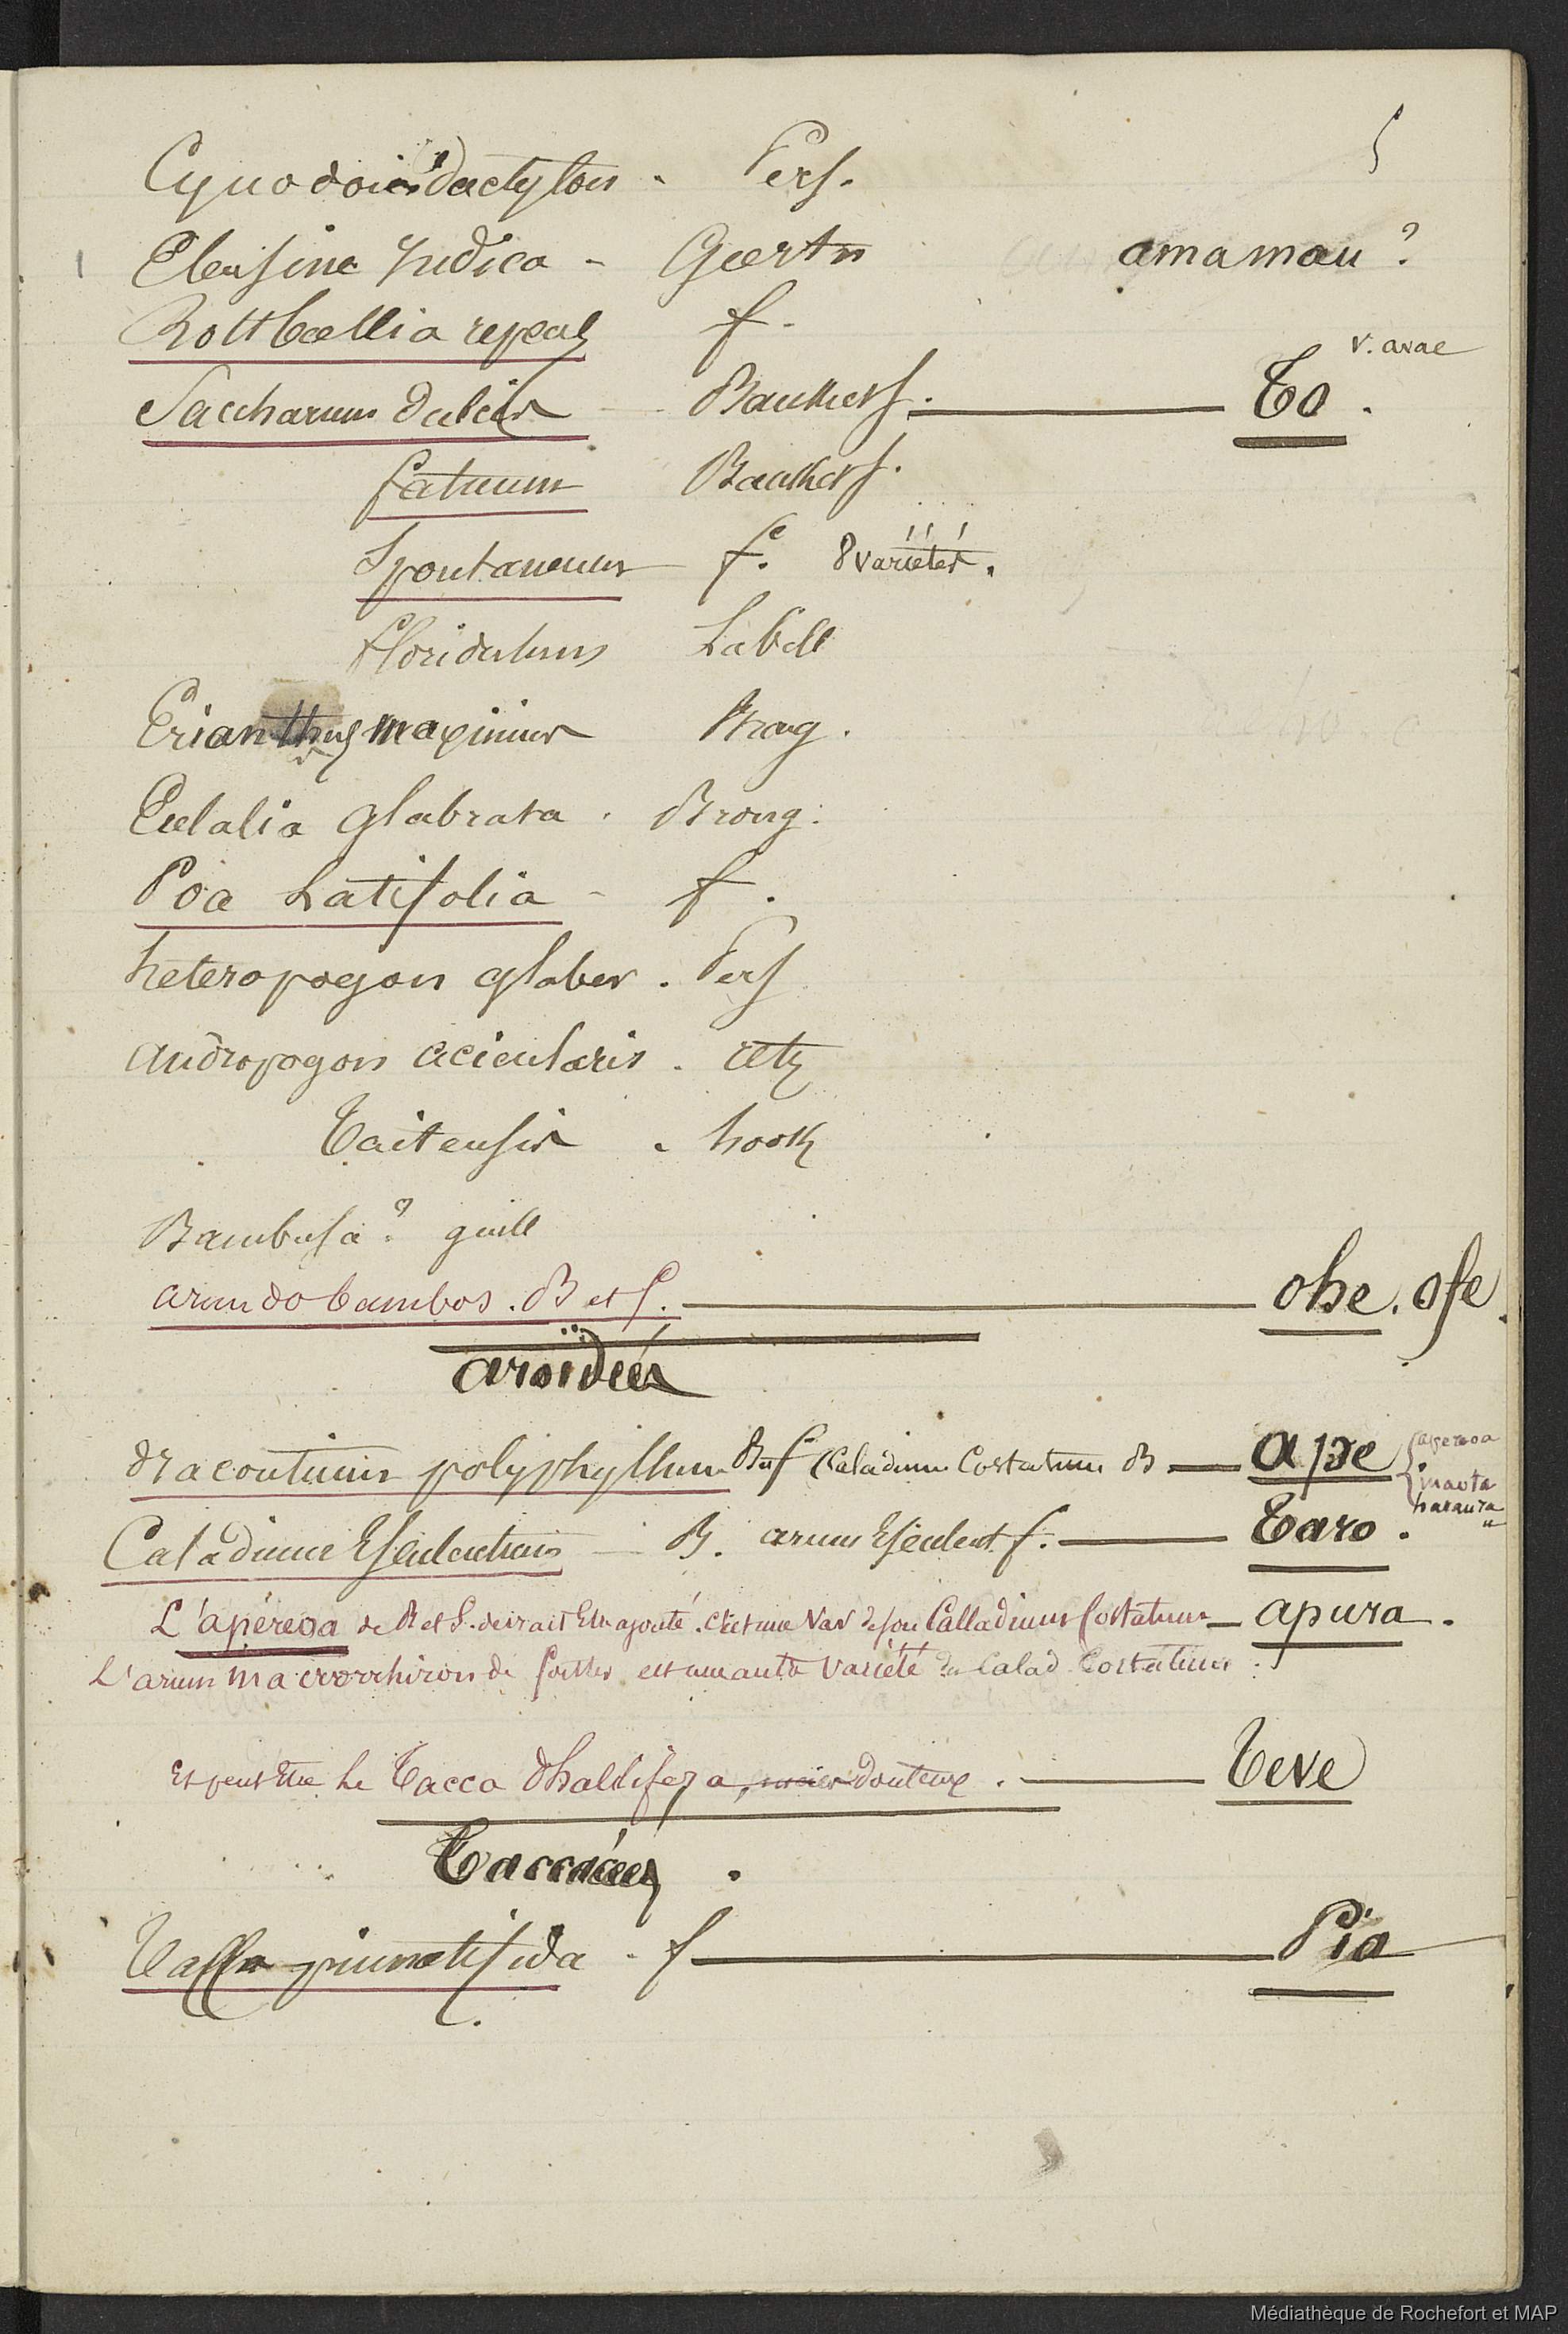 5
Cynodon dactylon . Pers.
Eleusine Indica - Gœrtn amamau ?
Rottbœllia repens f.
v. avae
Saccharum dulcis - Bankers. To .
fatuum Bankers.
Spontaneum f. 8 variétés.
floridulum Labill
Erianthus maximus Brong .
Eulalia glabrata . Brong.
Poa Latifolia - f .
heteropogon glaber . Pers
andropogon acicularis . retz
Taitensis . hook
Bambusa ? guill
arundo bambos . B et S. ohe . ofe
aroïdées
dracontium polyphyllum B et f Caladium Costatum B ape aperoa
maota
haraura "
Caladium Esculentum - B. arum Esculent f. Taro .
L'apereoa de B et S. devrait Etre ajouté . C'est une Var de son Calladium Costatum apura .
L'arum macrorrhizon de forster est une autre variété du Calad. Costatum .
Et peut Etre Le Tacca Phallifera, douteux . Teve
Taccacées .
Tacca pinnatifida - f Pia
Médiathèque de Rochefort et MAP